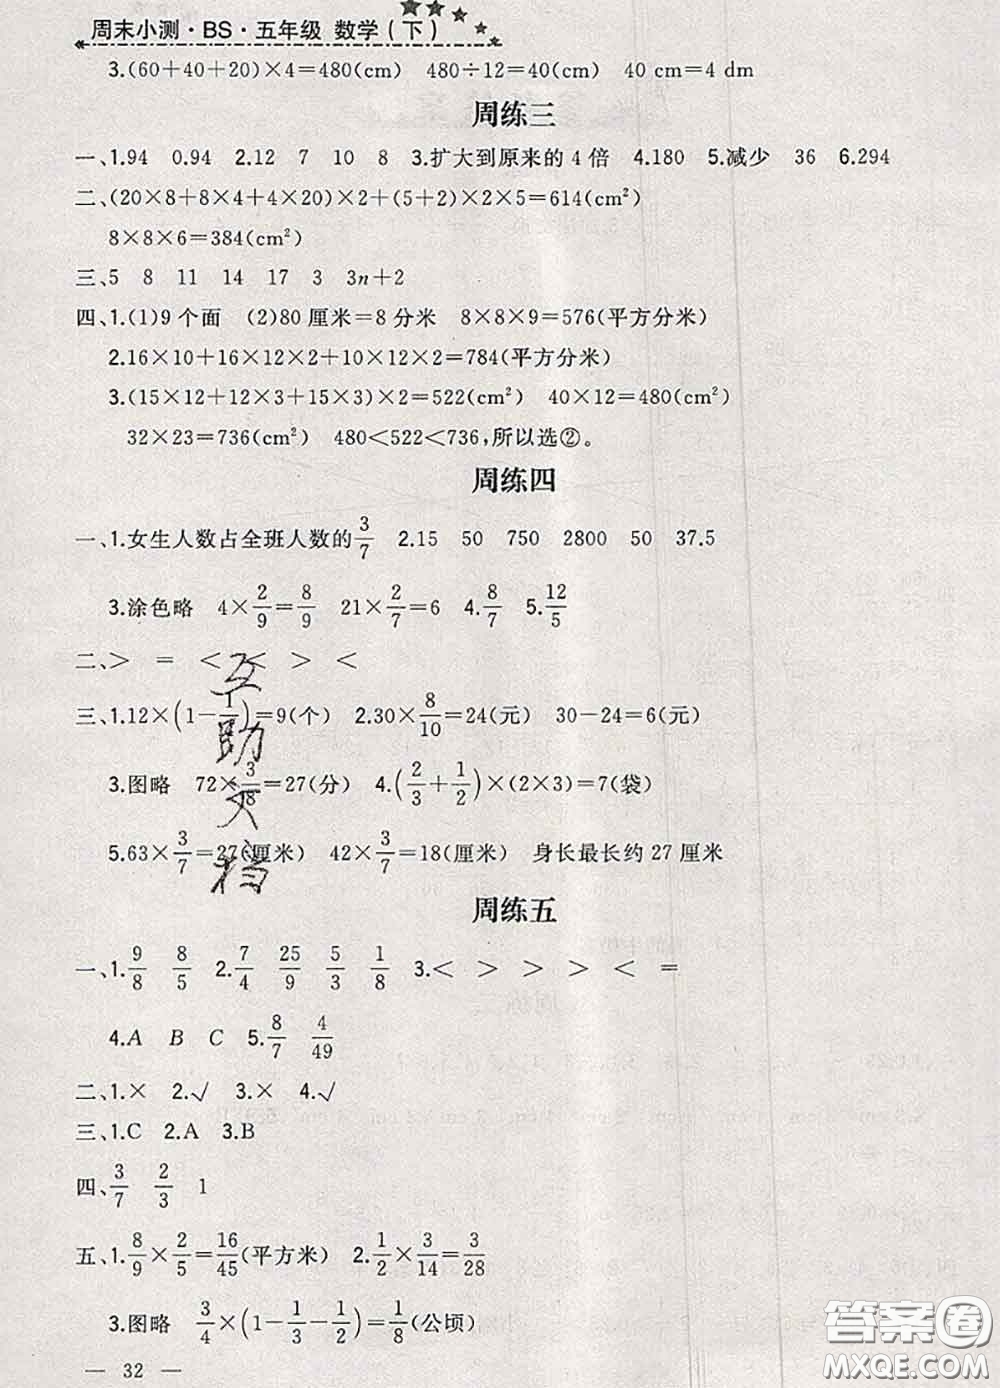 周末小测·BS·五年级 数学(下)
3.(60+40+20)×4=480(cm) 480÷12=40(cm) 40 cm=4 dm
周练三
一、1.94 0.94 2.12 7 10 8 3.扩大到原来的4倍 4.180 5.减少 36 6.294
二、(20×8+8×4+4×20)×2+(5+2)×2×5=614(cm²)
8×8×6=384(cm²)
三、5 8 11 14 17 3 3n+2
四、1.(1)9个面 (2)80厘米=8分米 8×8×9=576(平方分米)
2.16×10+16×12×2+10×12×2=784(平方分米)
3.(15×12+12×3+15×3)×2=522(cm²) 40×12=480(cm²)
32×23=736(cm²) 480<522<736,所以选②。
周练四
一、1.女生人数占全班人数的3/7 2.15 50 750 2800 50 37.5
3.涂色略 4×2/9=8/9 21×2/7=6 4.8/7 5.12/5
二、> = < < > <
三、1.12×(1-1/)=9(个) 2.30×8/10=24(元) 30-24=6(元)
3.图略 72×3/8=27(分) 4.(2/3+1/2)×(2×3)=7(袋)
5.63×3/7=27(厘米) 42×3/7=18(厘米) 身长最长约27厘米
互助文档
周练五
一、1.9/8 8/5 2.7/4 25/9 5/3 1/8 3.< > > > < =
4.A B C 5.8/7 4/49
二、1.× 2.√ 3.× 4.√
三、1.C 2.A 3.B
四、3/7 2/3 1
五、1.8/9×2/5=16/45(平方米) 2.1/2×3/14=3/28
3.图略 3/4×(1-1/3-1/2)=1/8(公顷)
— 32 —
答案圈
MXQE.COM